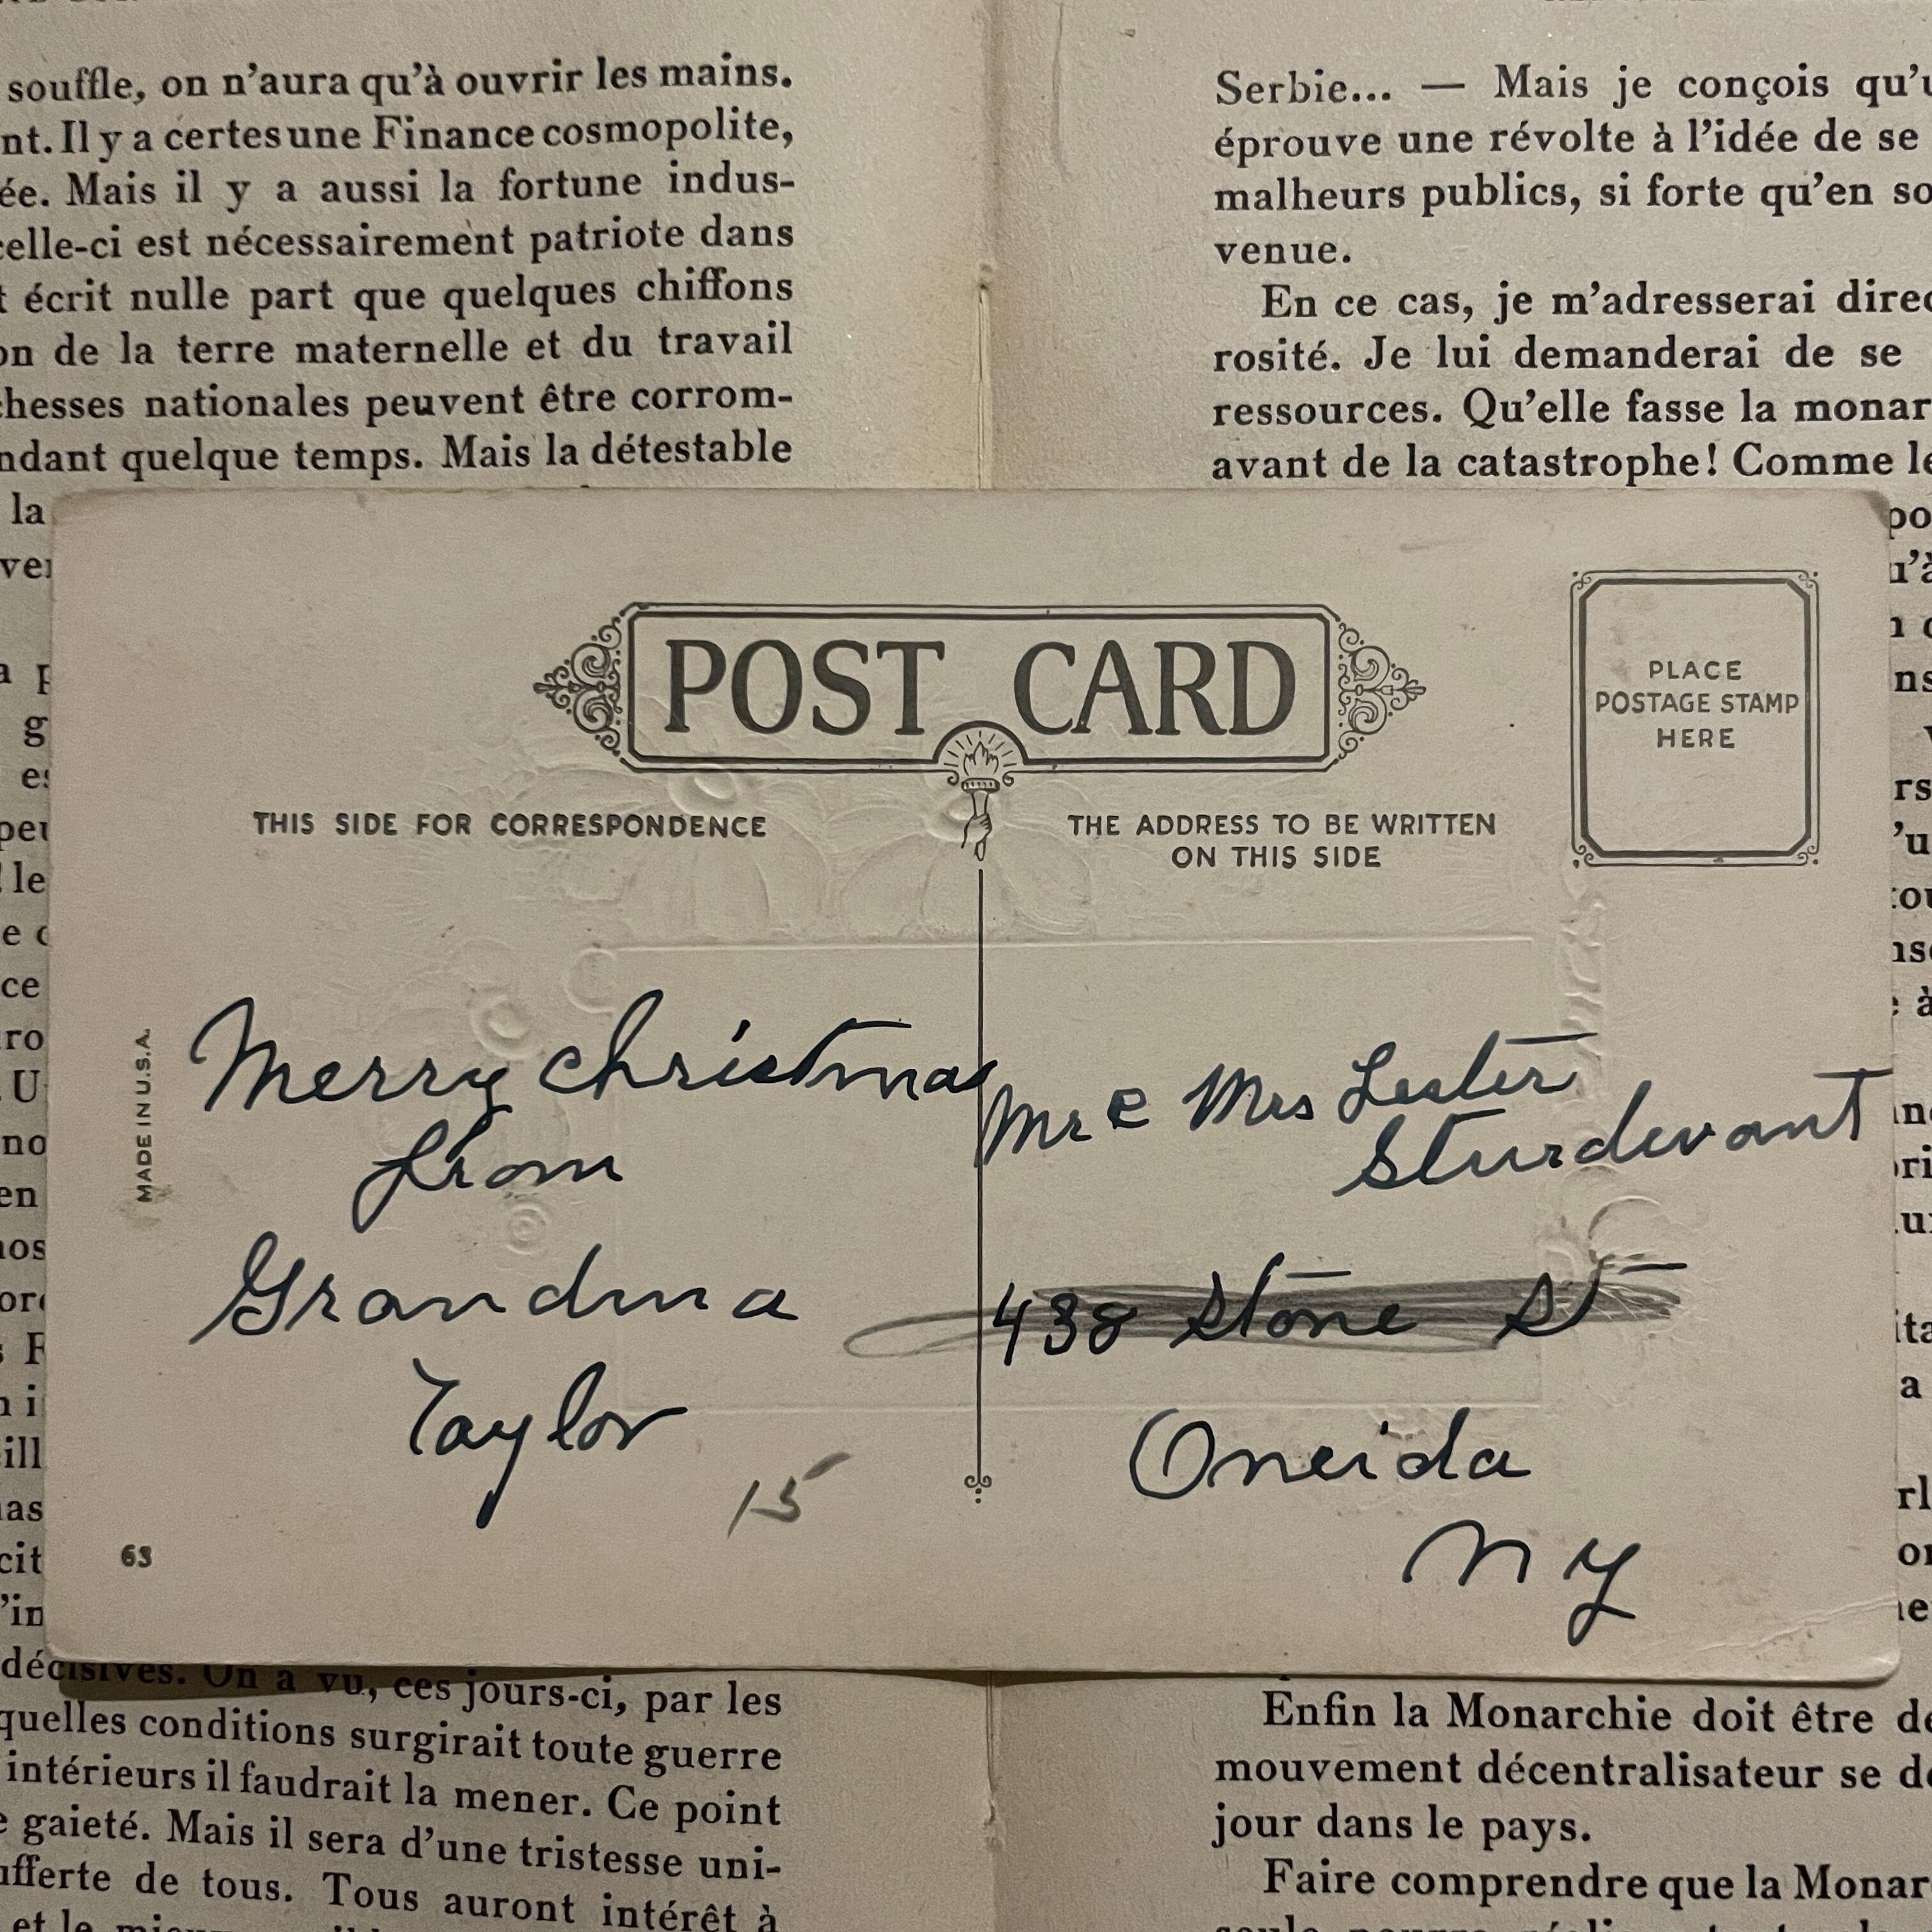 souffle, on n'aura qu'à ouvrir les mains.
nt. Il y a certes une Finance cosmopolite,
ée. Mais il y a aussi la fortune indus-
celle-ci est nécessairement patriote dans
t écrit nulle part que quelques chiffons
on de la terre maternelle et du travail
chesses nationales peuvent être corrom-
ndant quelque temps. Mais la détestable
la
Serbie... — Mais je conçois qu'u
éprouve une révolte à l'idée de se
malheurs publics, si forte qu'en so
venue.
En ce cas, je m'adresserai direc
rosité. Je lui demanderai de se
ressources. Qu'elle fasse la monar
avant de la catastrophe! Comme le
POST CARD
PLACE
POSTAGE STAMP
HERE
THIS SIDE FOR CORRESPONDENCE
THE ADDRESS TO BE WRITTEN
ON THIS SIDE
MADE IN U.S.A.
Merry Christmas
from
Grandma
Taylor
15
63
Mr & Mrs Lester
Sturdevant
438 Stone St
Oneida
NY
décisives. On a vu, ces jours-ci, par les
quelles conditions surgirait toute guerre
intérieurs il faudrait la mener. Ce point
e gaieté. Mais il sera d'une tristesse uni-
ufferte de tous. Tous auront intérêt à
Enfin la Monarchie doit être dé
mouvement décentralisateur se de
jour dans le pays.
Faire comprendre que la Monar